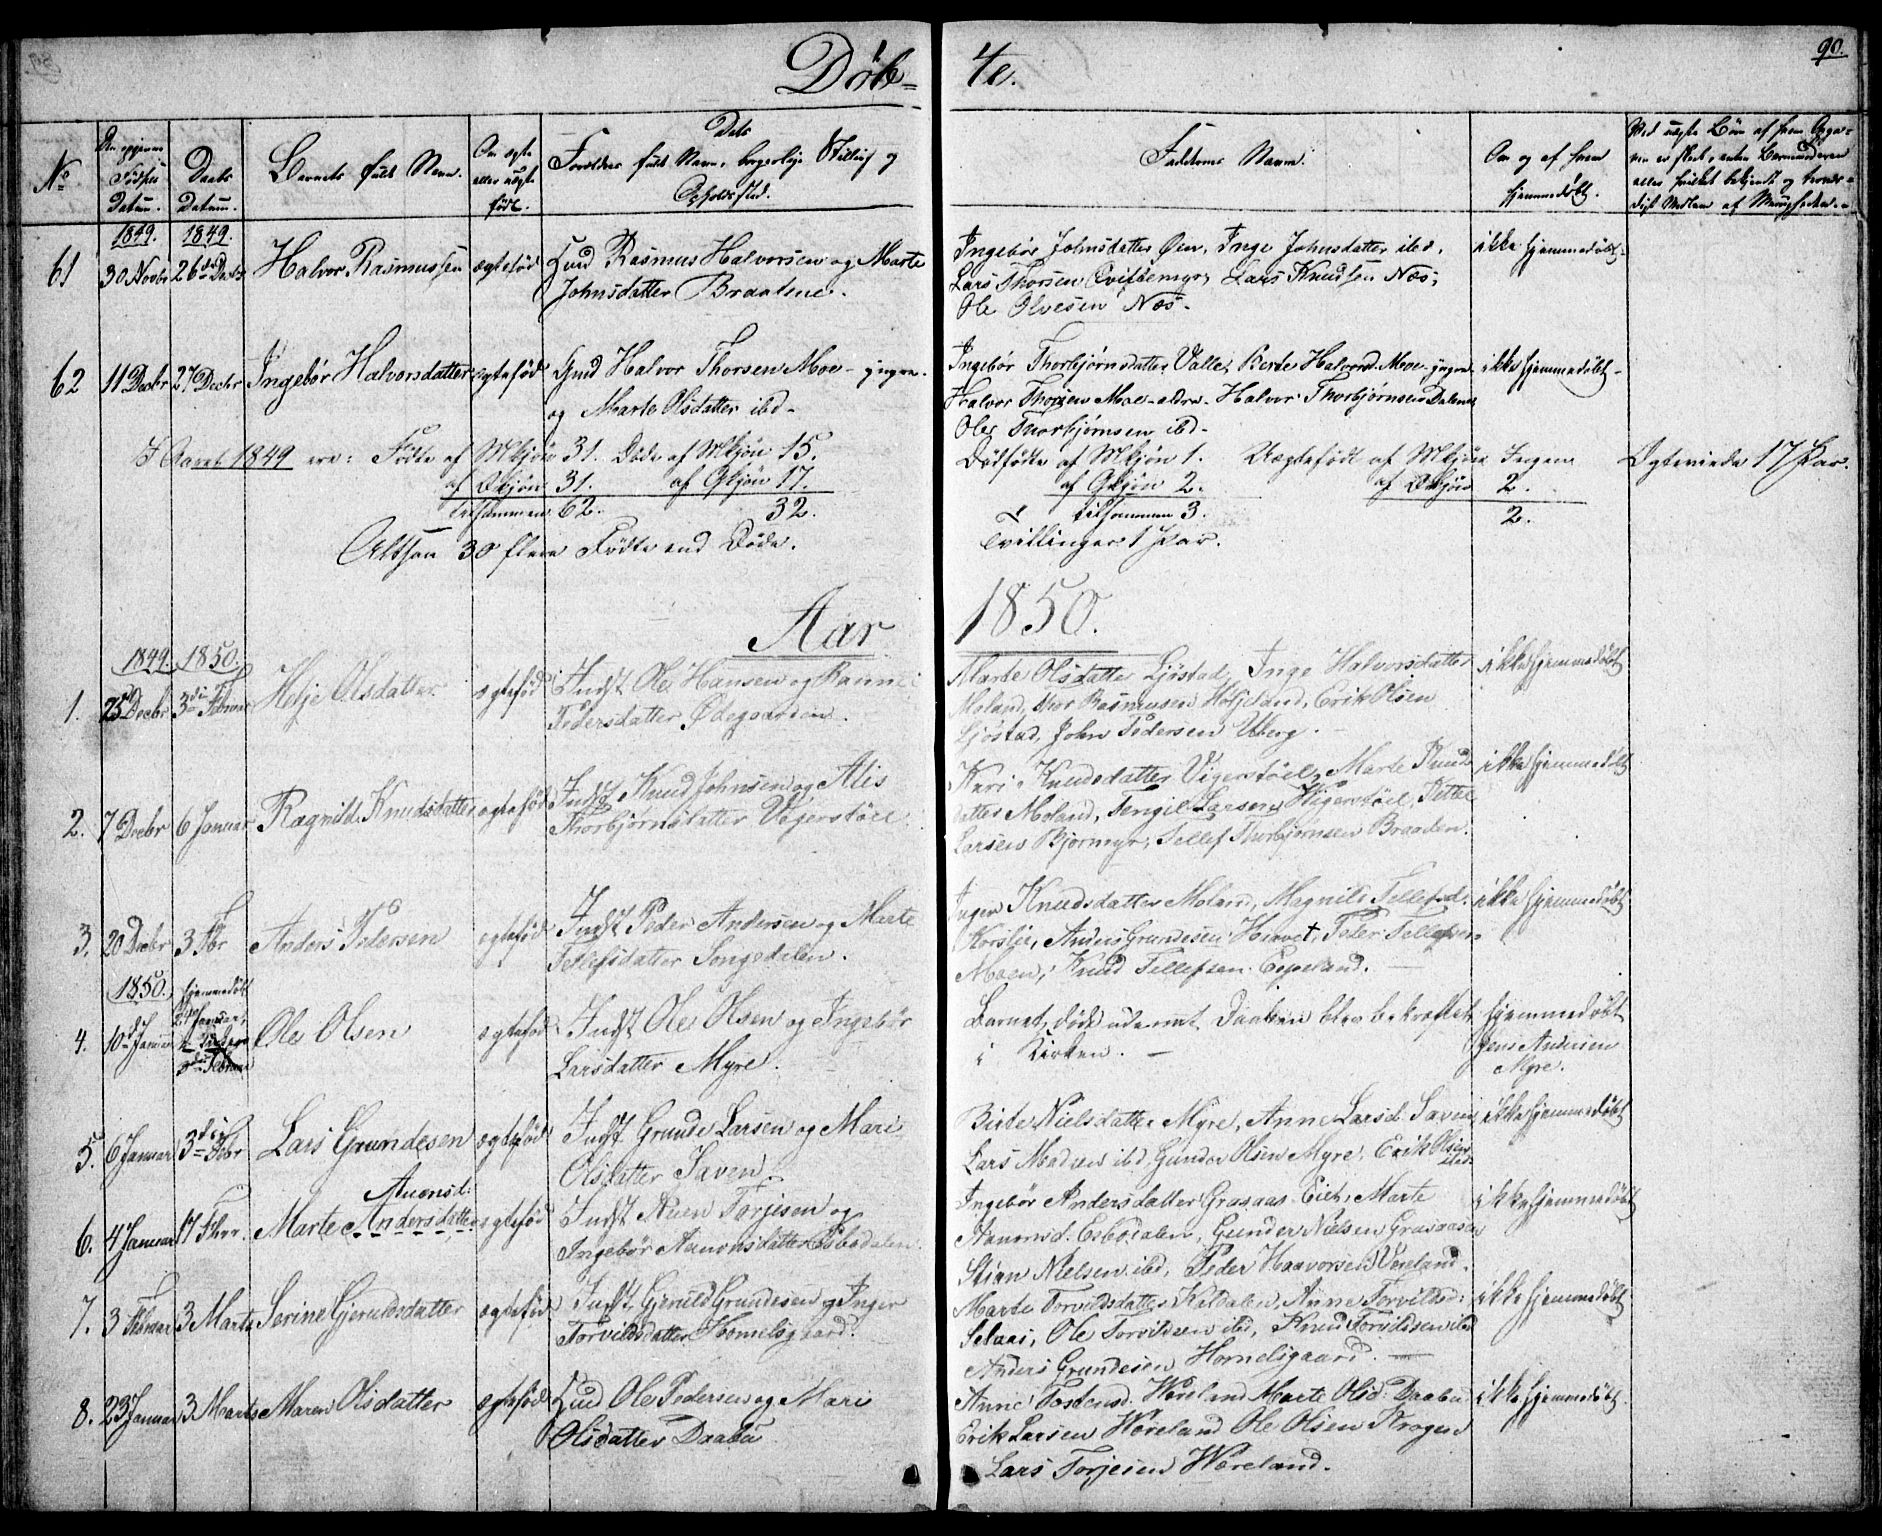 90.
Døb-
te.
No
Fødsels Datum.
Daabs Datum.
Barnets fulde Navn.
Om ægte eller uægte født.
Forældres fulde Navn, borgerlige Stilling og
Opholdssted.
Faddernes Navne.
Om og af hvem
hjemmedøbt.
1849. 1849.
61 30 Novbr 26de Decbr Halvor Rasmussen ægtefød Hmd Rasmus Halvorsen og Marte
Johnsdatter Braatene.
Ingebør Johnsdatter Øen, Inge Johnsdatter ibd.
Lars Thorsen Qvistemyr, Lars Knudsen Næs,
Ole Olvesen Næs.
ikke hjemmedøbt.
62 11 Decbr 27 Decbr Ingebør Halvorsdatter ægtefød Gmd Halvor Thorsen Moe - yngre.
og Marte Olsdatter ibd.
Ingebør Thorbjørnsdatter Valle, Berte Halvorsd. Moe yngre.
Halvor Thorsen Moe - eldre. Halvor Thorbjørnsen Dalene
Ole Thorbjørnsen ibd.
ikke hjemmedøbt.
I Aaret 1849 ere: Fødte af Mkjøn 31. Døde af Mkjøn 15.
af Qkjøn 31. af Qkjøn 17.
tilsammen 62. 32.
Altsaa 30 flere Fødte end Døde.
Dødfødte af Mkjøn 1. Uægtefødt af Mkjøn Ingen
af Qkjøn 2. af Qkjøn 2.
tilsammen 3. 2.
Tvillinger 1 Par.
Ægteviede 17 Par.
Aar 1850.
1849. 1850.
1. 25 Decbr 3die Februar Helje Olsdatter ægtefød Indst Ole Hansen og
Pedersdatter Ødegaarden.
Marte Olsdatter Ljøstad, Inge Halvorsdatter
Moland, Thor Rasmusen Holjeland, Erik Olsen
Ljøstad, John Pedersen Uberg.
ikke hjemmedøbt
2. 7 Decbr 6 Januar Ragnild Knudsdatter ægtefød Indst Knud Johnsen og Alis
Thorbjørnsdatter Vigerstøel
Kari Knudsdatter Vigerstøel, Marte Knuds
datter Moland, Tengil Larsen Vigerstøel, Kettel
Larsen Bjørmyr, Tellef Thorbjørnsen Braaden.
ikke hjemmedøbt
3. 20 Decbr 3 Fbr Anders Pedersen ægtefød Indst Peder Andersen og Marte
Tellefsdatter Songedalen.
Inger Knudsdatter Moland, Magnild Tellefsd.
Korslie, Anders Grundesen Hirvet, Peter Tellefsen
Moen, Knud Tellefsen Espeland.
ikke hjemmedøbt
1850. hjemmedøbt
4. 10de Januar Ole Olsen ægtefød Indst Ole Olsen og Ingebør
Larsdatter Myre.
Barnet døde uden at Daaben blev bekræftet
i Kirken.
hjemmedøbt
Jens Andersen
Myre.
5. 6 Januar 3die Fbr Lars Grundesen ægtefød Indst Grunde Larsen og Mari
Olsdatter Saven.
Birte Nielsdatter Myre, Anne Larsd. Saven,
Lars Madsen ibd, Gunder Olsen Myre, Erik Olsen
ikke hjemmedøbt
Auensd.
6. 4 Januar 17 Fbr. Marte Andersdatter ægtefød Indst Auen Torjesen og
Ingebør Aanonsdatter Esbødalen.
Ingebør Andersdatter Grasaas Eiet, Marte
Aanonsd. Esbødalen, Gunder Nielsen Grasaasen,
Stian Nielsen ibd, Peder Haavorsen Væreland.
ikke hjemmedøbt
7. 3 Februar 3 Marts Serine Gjeruldsdatter ægtefød Indst Gjeruld Grundesen og Inger
Torvildsdatter Hommelsgaard.
Marte Torvildsdatter Kaldalen, Anne Torvildsd.
Selaas, Ole Torvildsen ibd, Knud Torvildsen ibd
Anders Grundesen Homelsgaard.
ikke hjemmedøbt
8. 23 Januar 3 Marts Maren Olsdatter ægtefød Hmd Ole Pedersen og Mari
Olsdatter Daabu
Anne Tostensd. Væreland Marte Olsd. Daabu
Erik Larsen Væreland Ole Olsen Kragen
Lars Torjesen Væreland.
ikke hjemmedøbt.